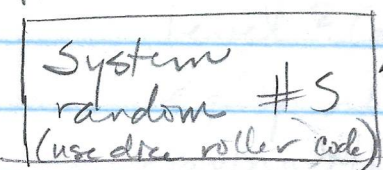 System
random #S
(use dice roller code)